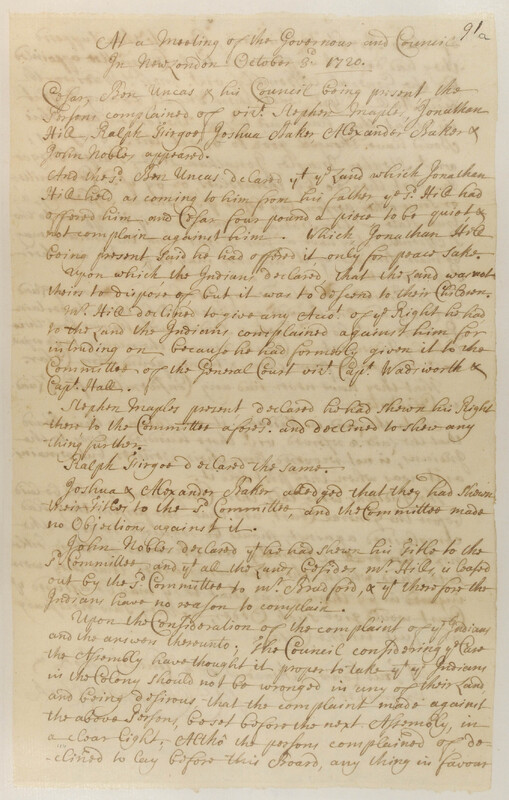 91a
At a Meeting of the Governour and Council
In New London October 3d. 1720.
Cesar, Ben Uncas & his Council being present the
Persons complained of vizt. Stephen Maples, Jonathan
Hill, Ralph Joshua Baker Alexander Baker &
John Nobles appeared.
And the sd. Ben Uncas declared yt ye Land which Jonathan
Hill held as coming to him from his father ye sd. Hill had
offered him and Cesar four pound a piece to be quiet &
not complain against him. Which Jonathan Hill
being present said he had offered it only for peace sake.
Upon which the Indians declared that the Land was not
theirs to dispose of but it was to descend to their Children.
Mr. Hill declined to give any Acct. of ye Right he had
to the Land the Indians complained against him for
intruding on because he had formerly given it to the
Committee of the General Court vizt Capt. Wadsworth &
Capt. Hall.
Stephen Maples present declared he had shewn his Right
there to the Committee afores. and declined to shew any
thing further.
Ralph declared the same.
Joshua & Alexander Baker alledged that they had shewn
their Titles to the sd. Committee, and the Committee made
no Objections against it.
John Nobles declared yt he had shewn his Title to the
sd. Committee, and yt all the Land besides mr. Hills, is leased
out by the sd. Committee to mr. Bradford, & yt therefore the
Indians have no reason to complain.
Upon the Consideration of the complaint of ye Indians
and the answers thereunto; The Council considering ye Care
the Assembly have thought it proper to take yt ye Indians
in the Colony should not be wronged in any of their Land
and being desirous that the complaint made against
the above Persons, be set before the next Assembly, in
a clear Light, Altho the persons complained of de-
-clined to lay before this Board, any thing in favour